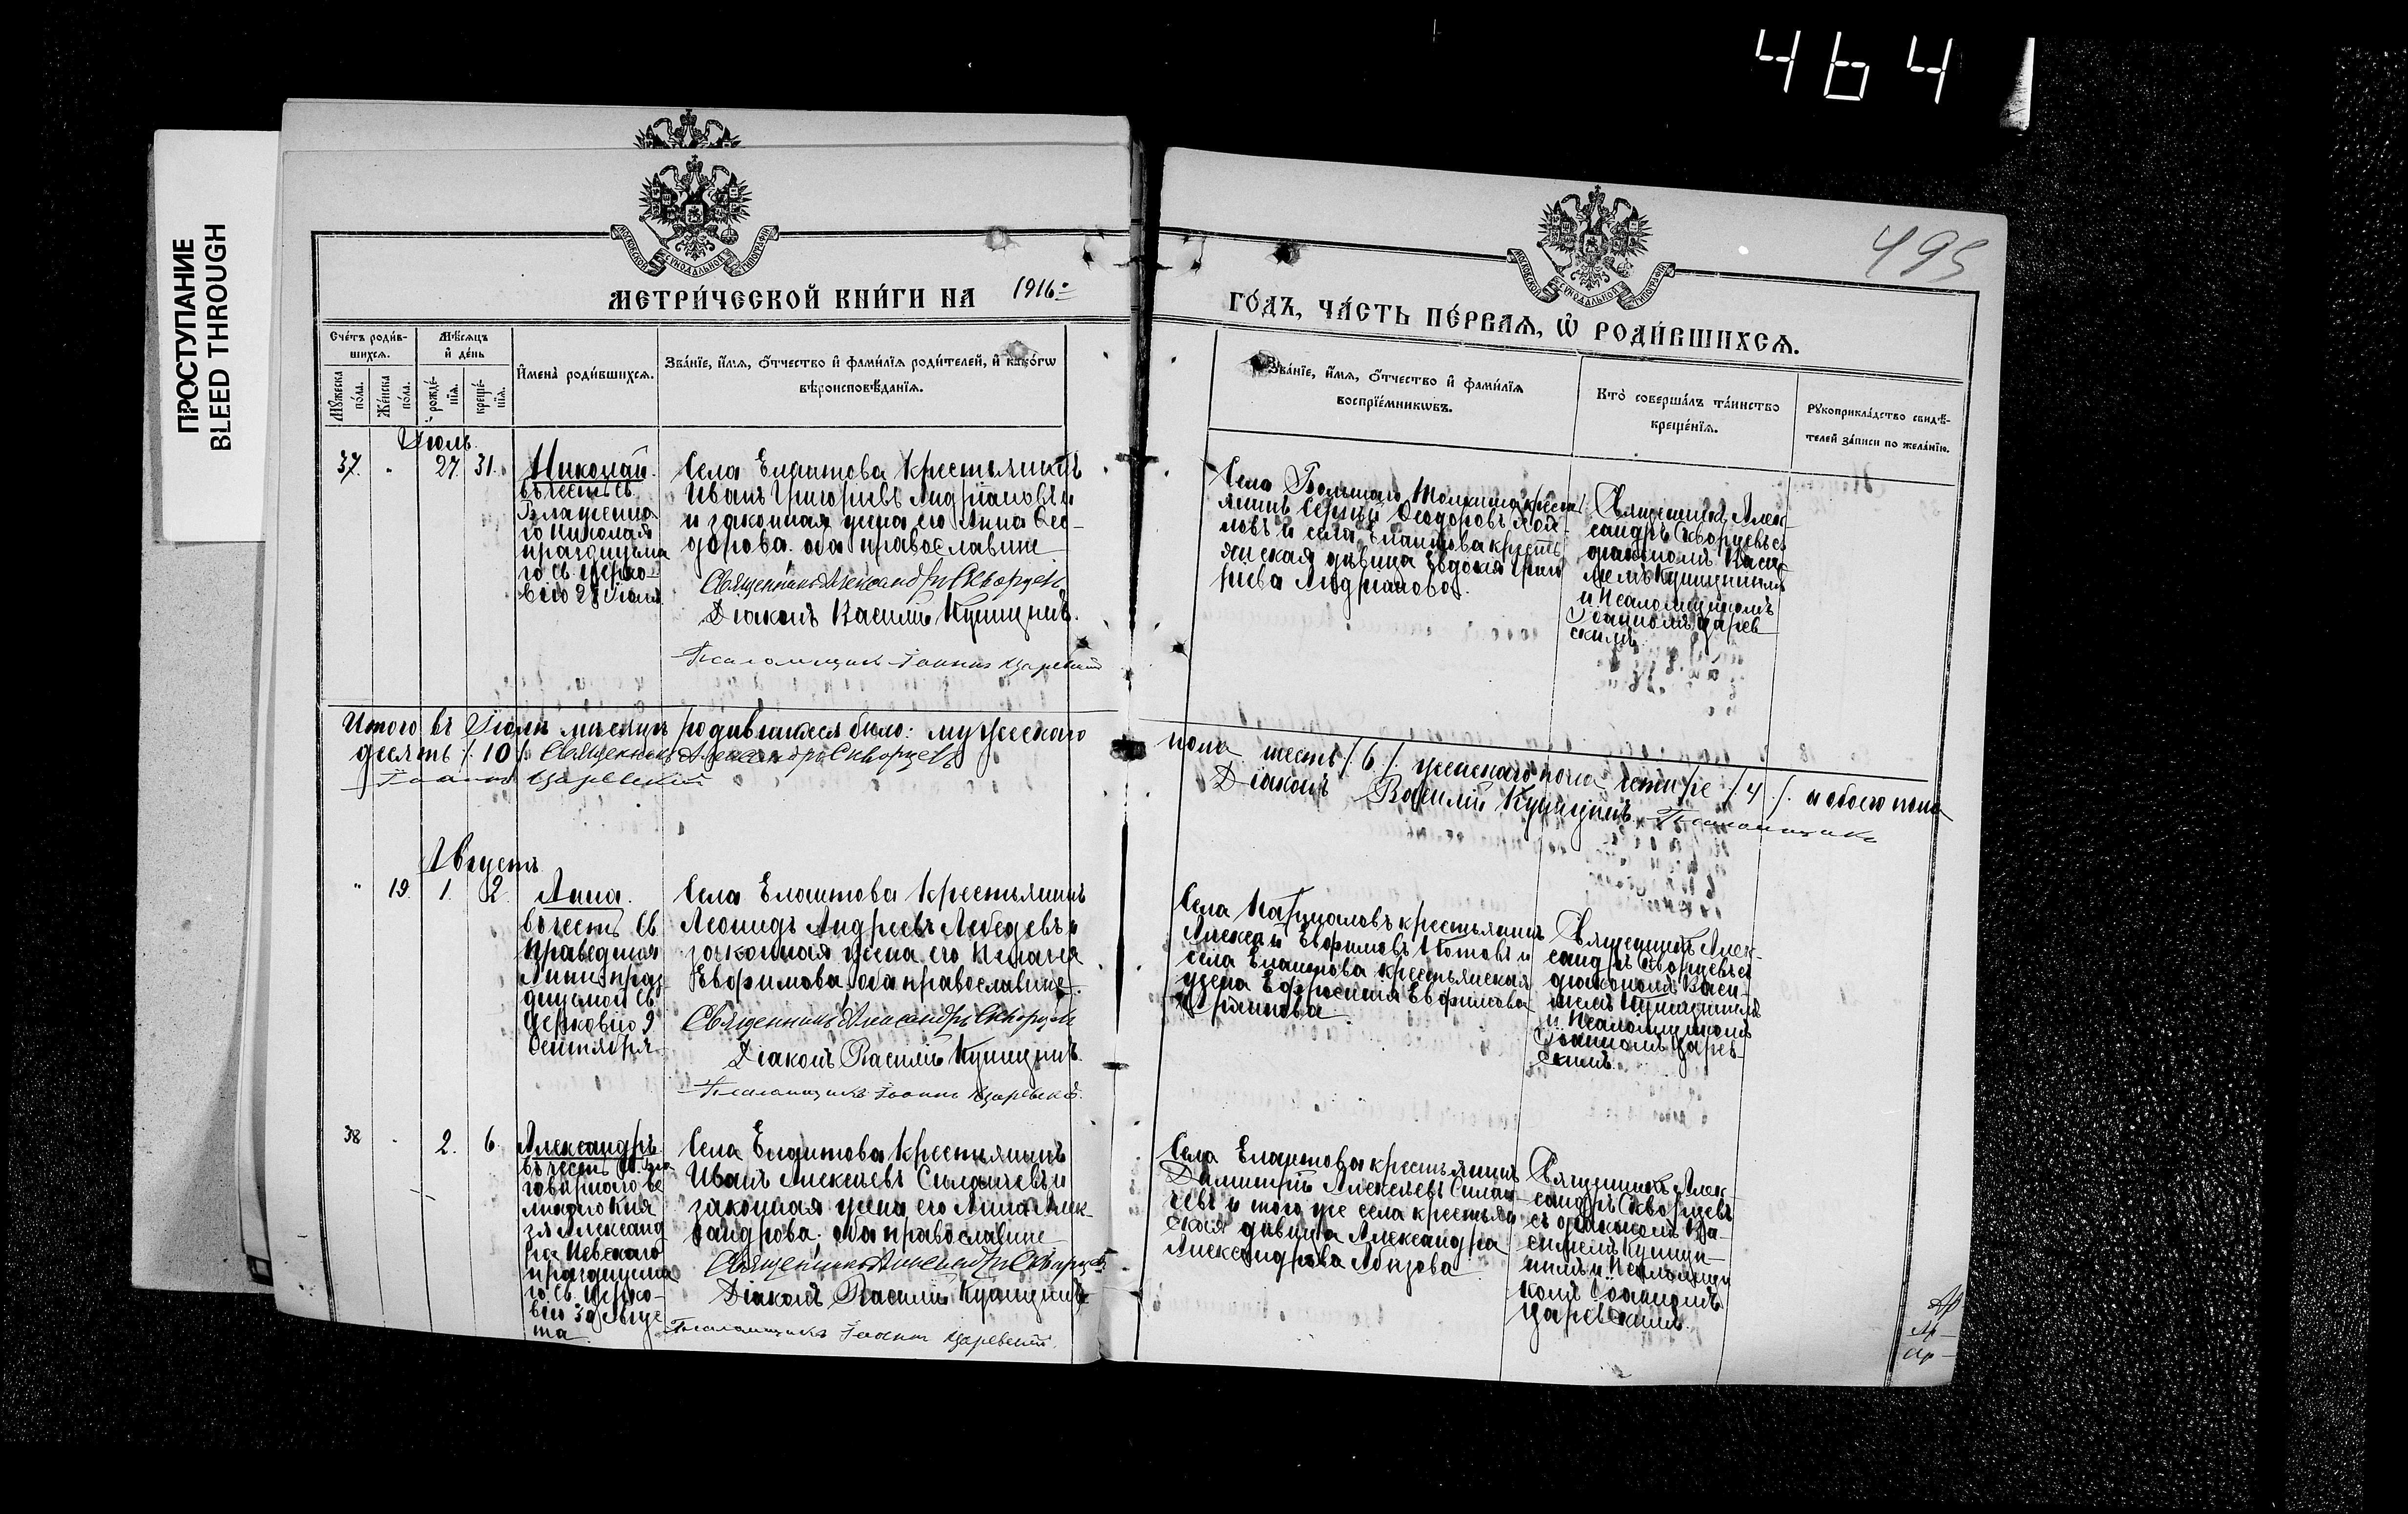 464
ПРОСТУПАНИЕ
BLEED THROUGH
495
МЕТРИ́ЧЕСКОЙ КНИ́ГИ НА 1916
ГО́ДЪ, ЧА́СТЬ ПЕ́РВАѦ, Ѡ РОДИ́ВШИХСѦ.
Сче́тъ роди́в-
шихсѧ.
Мѣ́сѧцъ
и де́нь
Мꙋ́жеска
по́ла.
Же́нска
по́ла.
рожде́-
нїѧ.
креще́-
нїѧ.
Имена̀ роди́вшихсѧ.
Зва́нїе, и́мѧ, о́тчество и фами́лїѧ роди́телей, и како́гѡ
вѣроисповѣ́данїѧ.
Зва́нїе, и́мѧ, о́тчество и фами́лїѧ
воспрїе́мникѡвъ.
Кто̀ соверша́лъ та́инство
креще́нїѧ.
Рꙋкоприкла́дство свидѣ́-
телей за́писи по жела́нїю.
Іюль.
37. " 27. 31.
Николай.
въ честь Св.
Блаженна
го Николая
празднуема
го Св. Церко-
вію 27 Іюля.
Села Елатмова крестьянинъ
Иванъ Григорьевъ Андріановъ и
и законная жена его Анна Ѳео-
дорова. оба православные
Священникъ Александръ Скворцевъ
Діаконъ Василій Купицынъ.
Псаломщикъ Іоаннъ Царевскій
янинъ Сергій Ѳеодоровъ
ловъ и села Елатмова кресть
янская дѣвица Евдокія Григо
рьева Андріанова.
Священникъ Алек-
сандръ Скворцевъ съ
діакономъ Васи-
ліемъ Купицынымъ
и Псаломщикомъ
Іоанномъ Царев
скимъ.
Итого въ Іюлѣ мѣсяцѣ родившихся было: мужескаго
пола шесть /6/. женскаго пола четыре /4/. и обоего пола
десять /10/. Священникъ Александръ Скворцевъ
Діаконъ Василій Купицынъ. Псаломщикъ
Іоаннъ Царевскій
Августъ
" 19. 1. 2.
Анна.
въ честь Св.
Праведныя
Анны празд
днуемой Св.
Церковію 9
Сентября.
Села Елатмова крестьянинъ
Леонидъ Андреевъ Лебедевъ и
законная жена его
Евфимова, оба православные.
Священникъ Александръ Скворцевъ
Діаконъ Василій Купицынъ.
Псаломщикъ Іоаннъ Царевскій.
крестьянинъ
Алексѣй Евфимовъ и
села Елатмова крестьянская
жена Ефросинія Евфимова
Священникъ Алек-
сандръ Скворцевъ съ
діакономъ Васи-
ліемъ Купицынымъ
и Псаломщикомъ
Іоанномъ Царев-
скимъ.
38 " 2. 6.
Александръ
въ честь Св. Бла
говѣрнаго Ве
ликаго Кня
зя Александ
ра Невскаго
празднуема
го Св. Церко-
вію 30 Авгус
та
Села Елатмова крестьянинъ
Иванъ Алексѣевъ Силачевъ и
законная жена его Анна Алек-
сандрова. оба православные
Священникъ Александръ Скворцевъ
Діаконъ Василій Купицынъ
Псаломщикъ Іоаннъ Царевскій.
Села Елатмова крестьянинъ
Димитрій Алексѣевъ Сила-
чевъ и того же села крестьян
ская дѣвица Александра
Александрова
Священникъ Алек-
сандръ Скворцевъ
съ діакономъ Ва-
силіемъ Купицы-
нымъ и Псаломщи
комъ Іоанномъ
Царевскимъ.